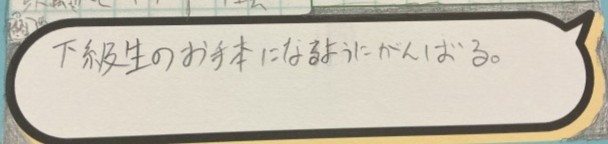 下級生のお手本になるようにがんばる。